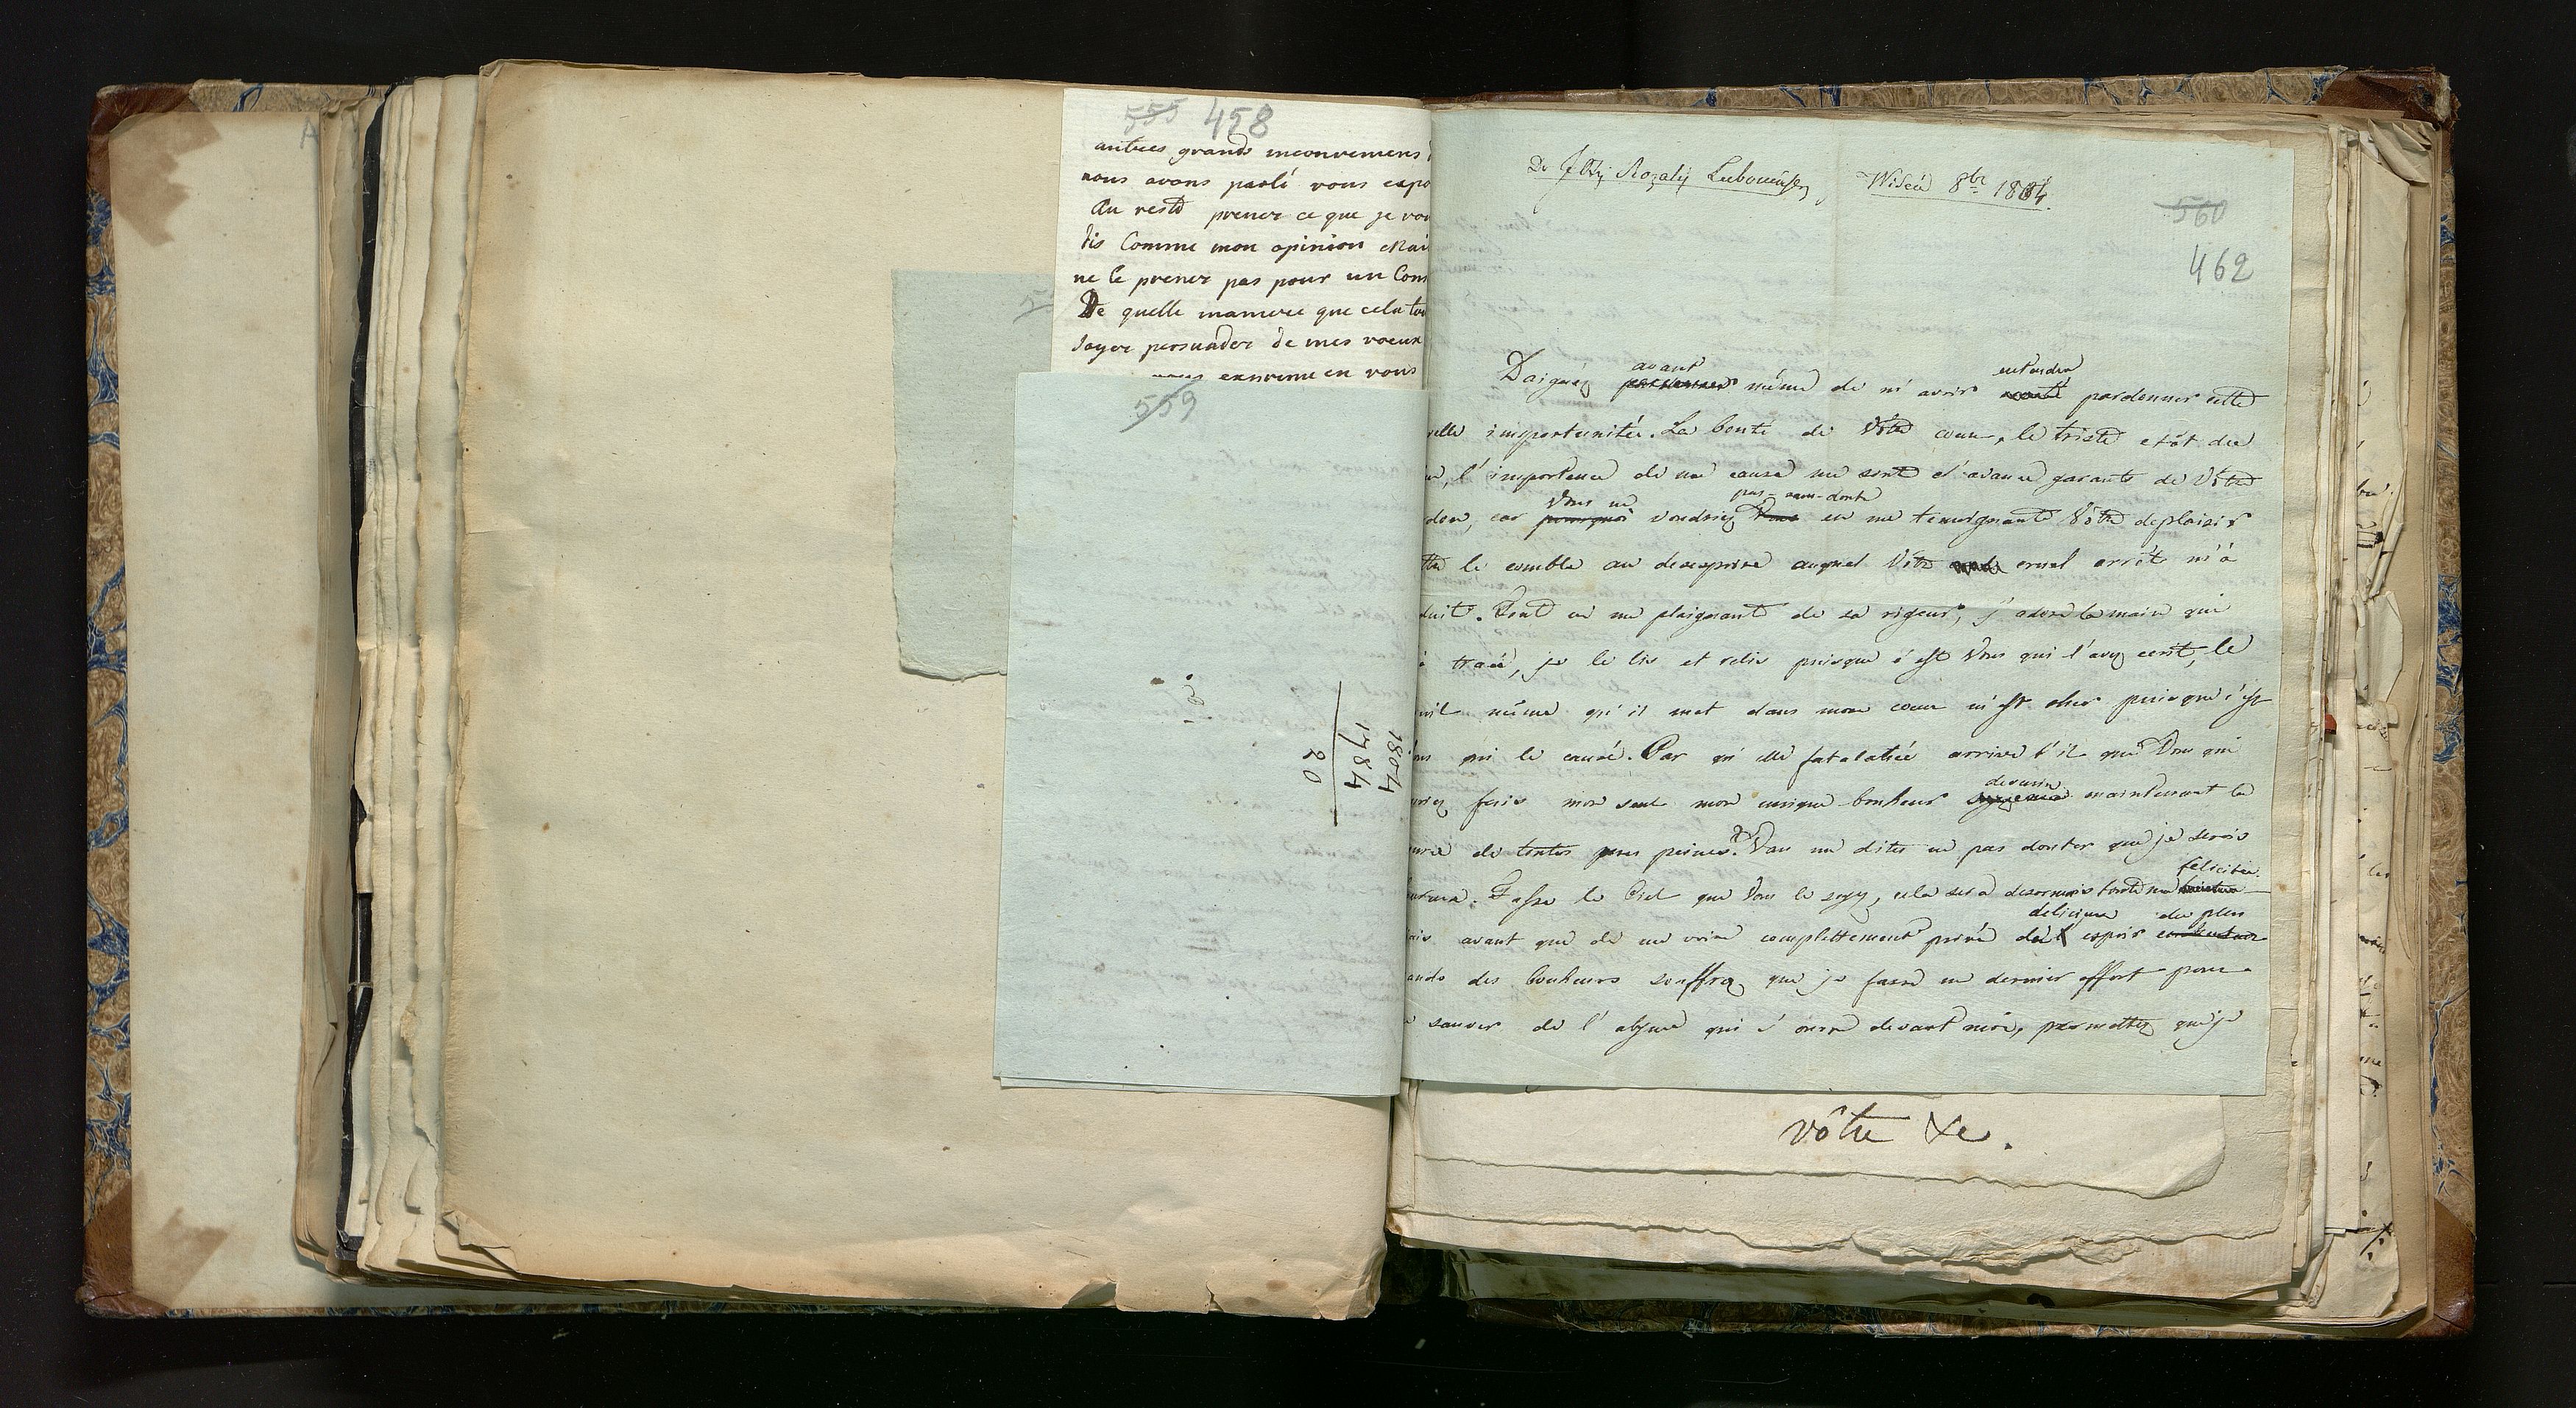 555 458
autres grands inconveniens
nous avons parlé vous expo
Au reste prenez ce que je vou
dis Comme mon opinion Mai
ne le prenez pas pour un Cons
De quelle maniere que cela to
soyez persuader de mes voeux
extreme en vous
559
1804
1784
20
Do JOXny Rozalij Lubomirskiey Wideń 8bre 1804.
560
462
avant entendu
Daignez pardonner même de m'avoir écouté pardonner cette
velle importunitée. La bonté de Vôtre coeur, le triste etât du
l'importance de ma cause me sont d'avance garants de Vôtre
Vous ne pas sans-doute
don, car pourquoi voudriez Vous en me temoignant Vôtre deplaisir
ttre le comble au desespoire auquel Vôtre cruel arrêt m'a
duit. Tout en me plaignant de sa rigeur, j'adore la main qui
à tracé, je le lis et relis puisque c'est Vous qui l'avez ecrit, le
même qu'il met dans mon coeur m'est cher puisque c'est
ous qui le causé. Par qu'elle fatalitée arrive t'il que Vous qui
devenir
fais mon seul mon unique bonheur maintenant la
urce de toutes mes peines? Vous me dites ne pas douter que je serois
félicitée
heureux. Fasse le Ciel que Vous le soyez, cela sera desormais toute ma
delicieux du plus
ais avant que de me voire complettement privé de l'espoir
ands des bonheurs souffrez que je fasse un dernier effort pour
sauver de l'abyme qui s'ouvre devant moi, permettez que je
vôtre &c.